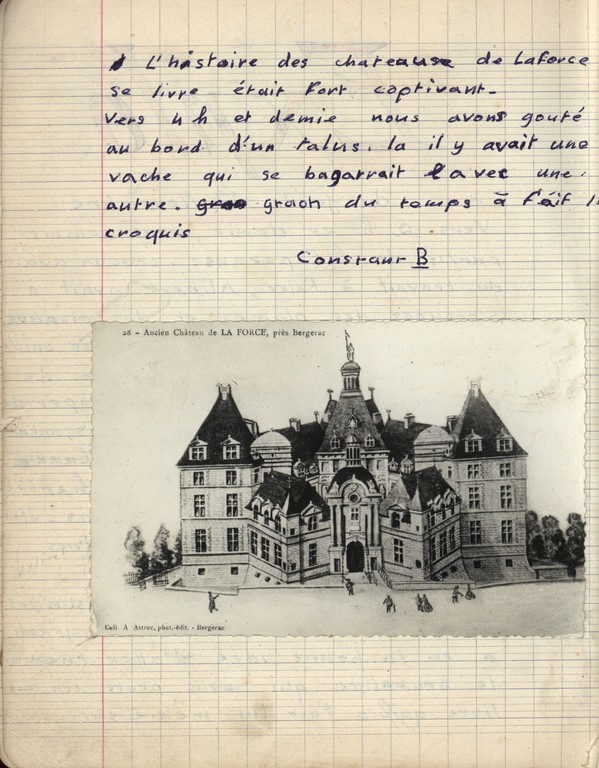 L'histoire des chateause de Laforce
se livre était Fort captivant.
Vers 4 h et demie nous avons gouté
au bord d'un talus. la il y avait une
vache qui se bagarrait avec une
autre. graoh du temps à fait
croquis
Constant B
28 - Ancien Château de LA FORCE, près Bergerac
Coll A Astruc, phot.-édit. - Bergerac